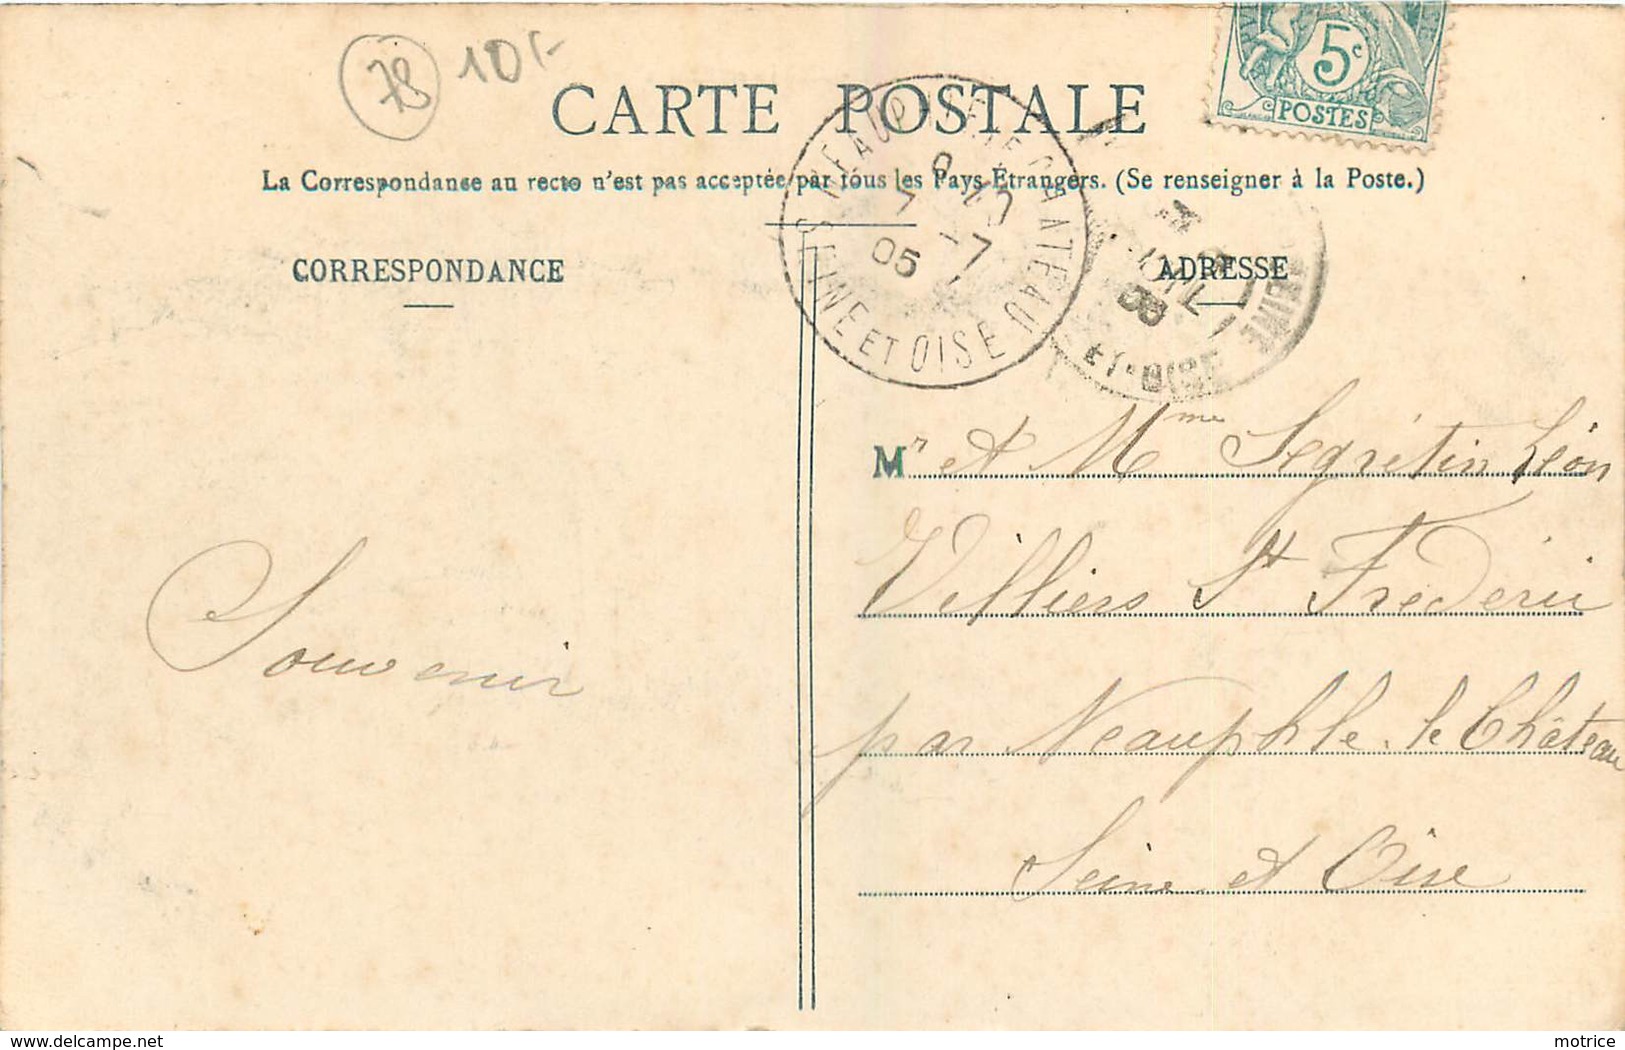 78 10/-
5c
POSTES
CARTE POSTALE
La Correspondanse au recto n'est pas acceptée par tous les Pays Etrangers. (Se renseigner à la Poste.)
NEAUPHLE LE CHATEAU
7 -7
05
SEINE ET OISE
SEINE
ET-OISE
CORRESPONDANCE
ADRESSE
Mr et Mme Segrétin Léon
Villiers St Fréderic
par Neauphle-le Château
Seine et Oise
Souvenir
Delcampe.net
motrice